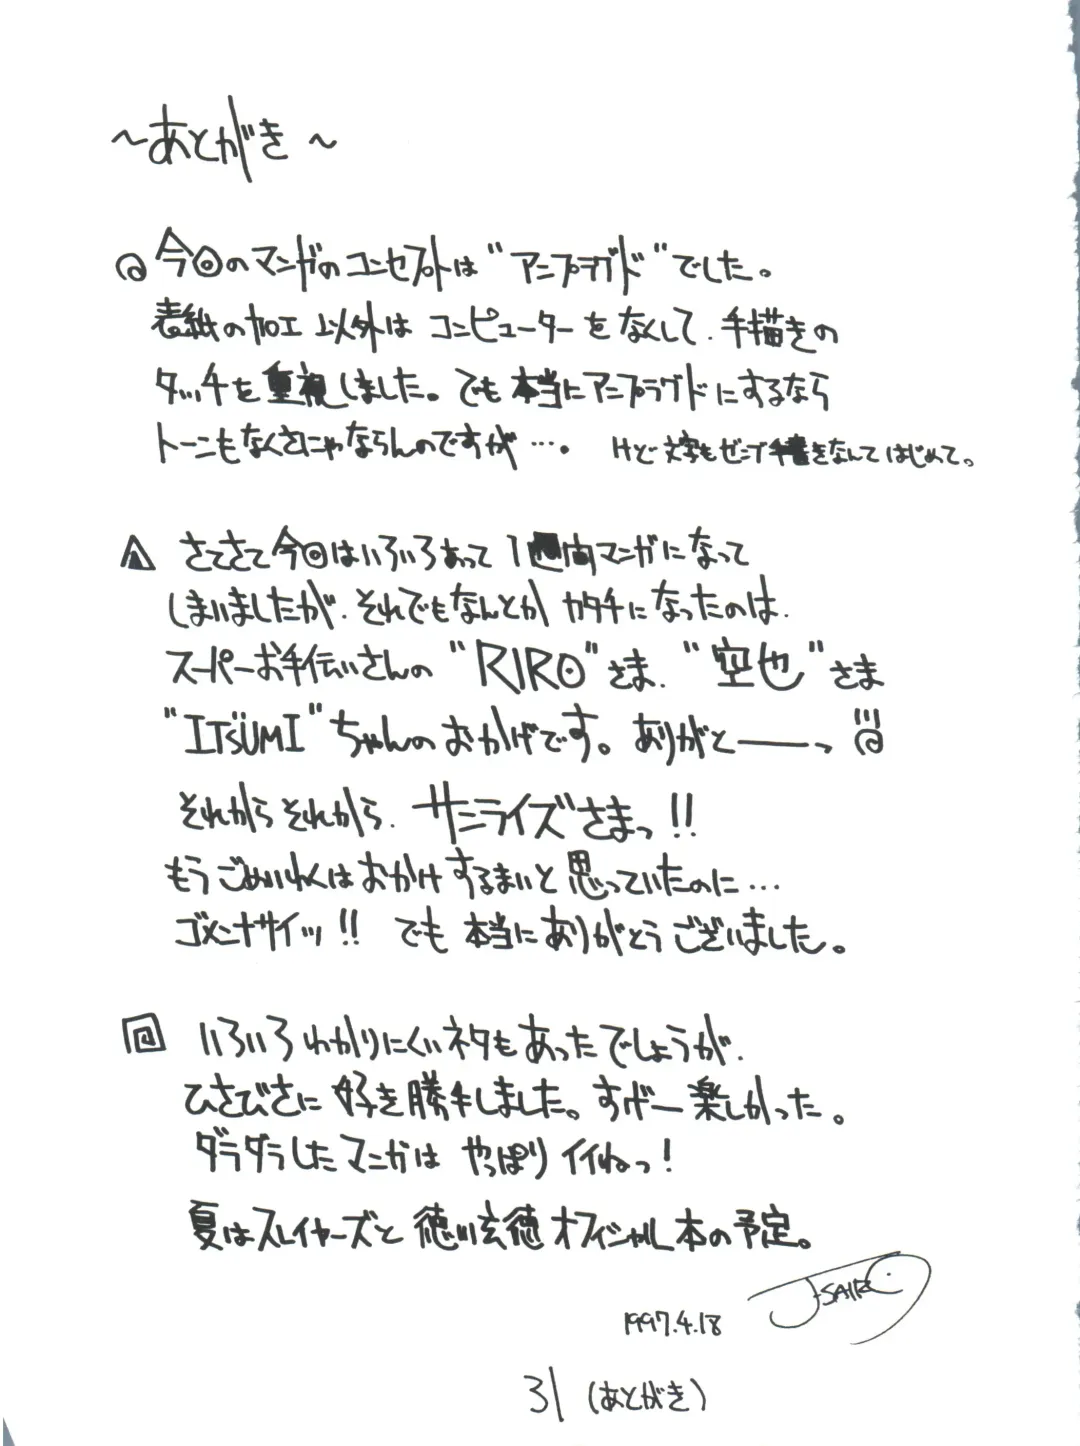 ～あとがき～
@今回のマンガのコンセプトは"アンプラグド"でした。
表紙の加工以外はコンピューターをなくして、手描きの
タッチを重視しました。でも本当にアンプラグドにするなら
トーンもなくさにゃならんのですが…。けど文字もゼンブ手書きなんてはじめて。
さてさて今回はいろいろあって1週間マンガになって
しまいましたが、それでもなんとかカタチになったのは、
スーパーお手伝いさんの"RIRO"さま、"空也"さま
"ITSUMI"ちゃんのおかげです。ありがと――っ!!!@
それからそれから、サンライズさまっ!!
もうごめいわくはおかけするまいと思っていたのに…
ゴメンナサイッ!! でも本当にありがとうございました。
いろいろわかりにくいネタもあったでしょうが、
ひさびさに好き勝手しました。すげー楽しかった。
ダラダラしたマンガはやっぱりイイねっ!
夏はスレイヤーズと徳川玄徳オフィシャル本の予定。
J-SAIRO
1997.4.18
31 (あとがき)